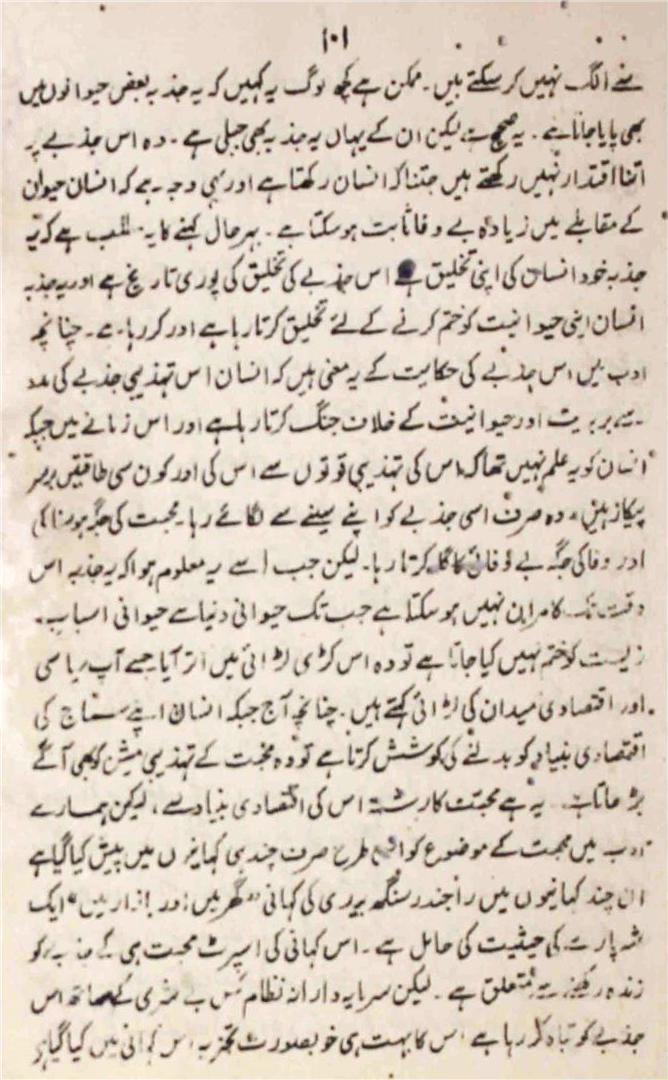 ۱۰۱
سے الگ نہیں کر سکتے ہیں۔ ممکن ہے کچھ لوگ یہ کہیں کہ یہ جذبہ بعض حیوانوں میں
بھی پایا جاتا ہے۔ یہ صحیح ہے لیکن ان کے یہاں یہ جذبہ بھی جبلی ہے۔ وہ اس جذبے پر
اتنا اقتدار نہیں رکھتے ہیں جتنا کہ انسان رکھتا ہے اور یہی وجہ ہے کہ انسان حیوان
کے مقابلے میں زیادہ بے وفا ثابت ہو سکتا ہے۔ بہرحال کہنے کا یہ مطلب ہے کہ یہ
جذبہ خود انسان کی اپنی تخلیق ہے اس جذبے کی تخلیق کی پوری تاریخ ہے اور یہ جذبہ
انسان اپنی حیوانیت کو ختم کرنے کے لئے تخلیق کرتا رہا ہے اور کر رہا ہے۔ چنانچہ
ادب میں اس جذبے کی حکایت کے یہ معنی ہیں کہ انسان اس تہذیبی جذبے کی مدد
سے بربریت اور حیوانیت کے خلاف جنگ کرتا رہا ہے اور اس زمانے میں جبکہ
انسان کو یہ علم نہیں تھا کہ اس کی تہذیبی قوتوں سے اس کی اور کون سی طاقتیں برسر
پیکار ہیں، وہ صرف اسی جذبے کو اپنے سینے سے لگائے رہا۔ محبت کی جگہ ہوسناکی
اور وفا کی جگہ بے وفائی کا گلہ کرتا رہا۔ لیکن جب اسے یہ معلوم ہوا کہ یہ جذبہ اس
وقت تک کامران نہیں ہو سکتا ہے جب تک حیوانی دنیا سے حیوانی اسباب
زیست کو ختم نہیں کیا جاتا ہے تو وہ اس کڑی لڑائی میں اتر آیا جسے آپ سیاسی
اور اقتصادی میدان کی لڑائی کہتے ہیں۔ چنانچہ آج جبکہ انسان اپنے سماج کی
اقتصادی بنیاد کو بدلنے کی کوشش کرتا ہے تو وہ محبت کے تہذیبی مشن کو بھی آگے
بڑھاتا ہے۔ یہ ہے محبت کا رشتہ اس کی اقتصادی بنیاد سے، لیکن ہمارے
ادب میں محبت کے موضوع کو اس طرح صرف چند ہی کہانیوں میں پیش کیا گیا ہے
ان چند کہانیوں میں راجندر سنگھ بیدی کی کہانی "گھر میں اور بازار میں" ایک
شہ پارے کی حیثیت کی حامل ہے۔ اس کہانی کی اسپرٹ محبت ہی کے جذبے کو
زندہ رکھنے سے متعلق ہے۔ لیکن سرمایہ دارانہ نظام کس بے شرمی کے ساتھ اس
جذبے کو تباہ کر رہا ہے اس کا بہت ہی خوبصورت تجزیہ اس کہانی میں کیا گیا ہے